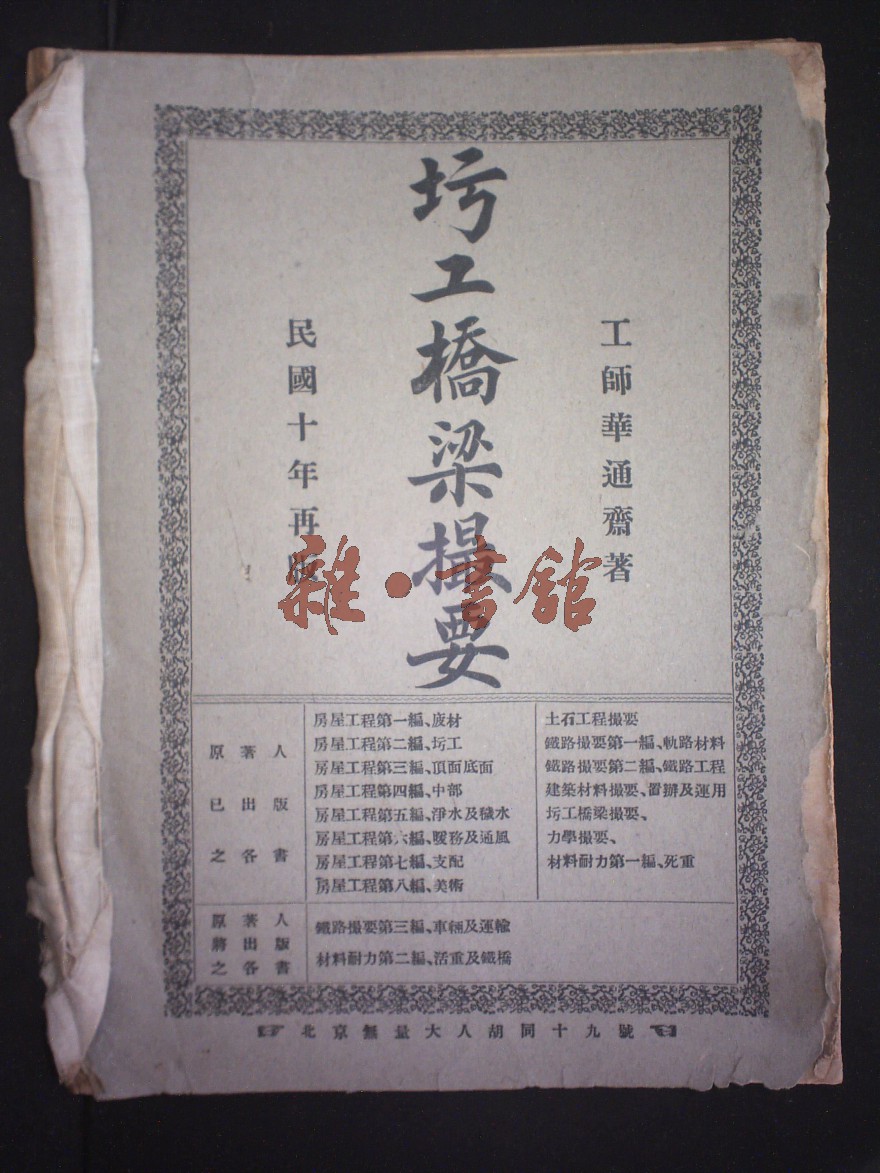 工師華通齋著
圬工橋梁撮要
民國十年再版
雜·書館
原著人
已出版
之各書
房屋工程第一編、底材
房屋工程第二編、圬工
房屋工程第三編、頂面底面
房屋工程第四編、中部
房屋工程第五編、淨水及穢水
房屋工程第六編、暖務及通風
房屋工程第七編、支配
房屋工程第八編、美術
土石工程撮要
鐵路撮要第一編、軌路材料
鐵路撮要第二編、鐵路工程
建築材料撮要、置辦及運用
圬工橋梁撮要、
力學撮要、
材料耐力第一編、死重
原著人
將出版
之各書
鐵路撮要第三編、車輛及運輸
材料耐力第二編、活重及鐵橋
北京無量大人胡同十九號